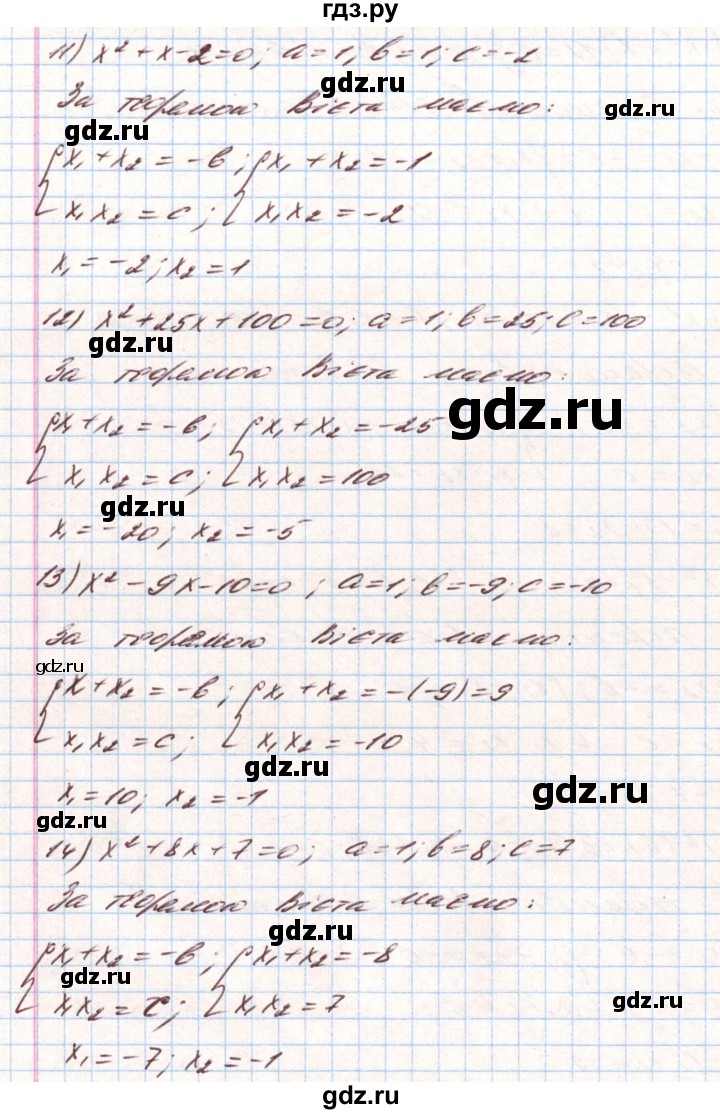 гдз.ру
11) x² + x - 2 = 0; a = 1; b = 1; c = -2
gdz.ru
За теоремою Вієта маємо:
gdz.ru
gdz.ru
{x₁ + x₂ = -b; {x₁ + x₂ = -1
gdz.ru
x₁x₂ = c; x₁x₂ = -2
x₁ = -2; x₂ = 1
12) x² + 25x + 100 = 0; a = 1; b = 25; c = 100
gdz.ru
За теоремою Вієта маємо:
gdz.ru
{x₁ + x₂ = -b; {x₁ + x₂ = -25
x₁x₂ = c; x₁x₂ = 100
gdz.ru
x₁ = -20; x₂ = -5
13) x² - 9x - 10 = 0; a = 1; b = -9; c = -10
За теоремою Вієта маємо:
gdz.ru
{x₁ + x₂ = -b; {x₁ + x₂ = -(-9) = 9
x₁x₂ = c; x₁x₂ = -10
gdz.ru
x₁ = 10; x₂ = -1
gdz.ru
14) x² + 8x + 7 = 0; a = 1; b = 8; c = 7
За теоремою Вієта маємо:
gdz.ru
{x₁ + x₂ = -b; {x₁ + x₂ = -8
gdz.ru
x₁x₂ = c; x₁x₂ = 7
gdz.ru
x₁ = -7; x₂ = -1
gdz.ru